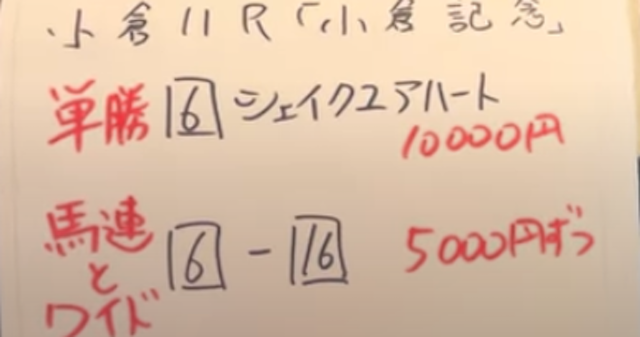 小倉11R「小倉記念」
単勝 6 シェイクユアハート
10000円
馬連
と
ワイド
6 - 16 5000円ずつ